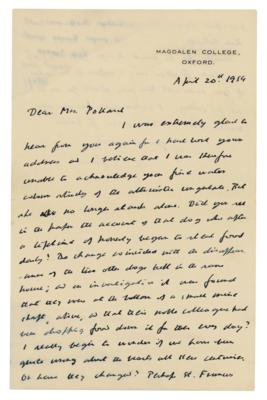 MAGDALEN COLLEGE,
OXFORD.
April 20th 1954
Dear Mrs. Pollard
I was extremely glad to
hear from you again for I had lost your
address and I believe that I was therefore
unable to acknowledge your fine water
colour study of the altruistic
who no longer stands alone. Did you see
in the papers the account of that dog who after
a lifetime of honesty began to steal food
daily? The change coincided with the disappear-
-ance of the two other dogs belt in the same
house; and on investigation it was found
that they were at the bottom of a mine
shaft, alive, and that their noble colleague had
been dropping food down it for them every day?
I really begin to wonder if we have been
quite wrong about the beasts all these centuries.
Or have they changed? Perhaps St. Francis